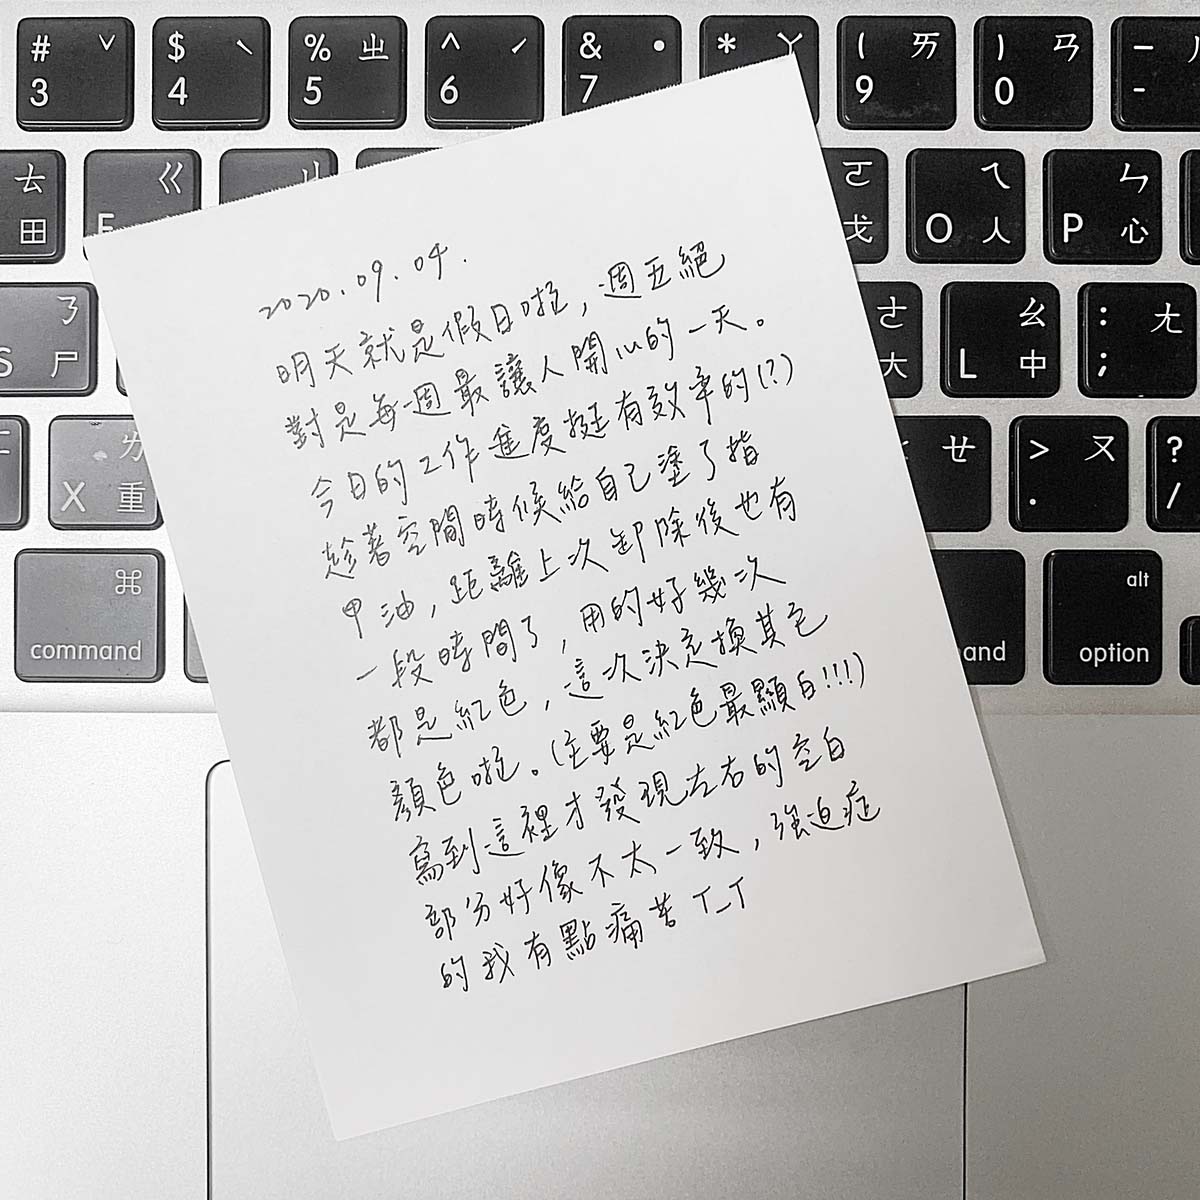 # ˇ
3
$ ˋ
4
% ㄓ
5
^ ˊ
6
& ˙
7
* ㄚ
( ㄞ
9
) ㄢ
0
—
-
ㄊ
田
ㄍ
ㄛ
戈
ㄟ
O 人
ㄣ
P 心
ㄋ
S 尸
ㄜ
大
ㄠ
L 中
: ㄤ
;
ㄌ
X 重
ㄝ
> ㄡ
.
?
/
⌘
command
and
alt
option
2020.09.04.
明天就是假日啦,週五絕
對是每週最讓人開心的一天。
今日的工作進度挺有效率的(?)
趁著空閒時候給自己塗了指
甲油,距離上次卸除後也有
一段時間了,用的好幾次
都是紅色,這次決定換其它
顏色啦。(主要是紅色最顯白!!!)
寫到這裡才發現左右的空白
部分好像不太一致,強迫症
的我有點痛苦 T_T